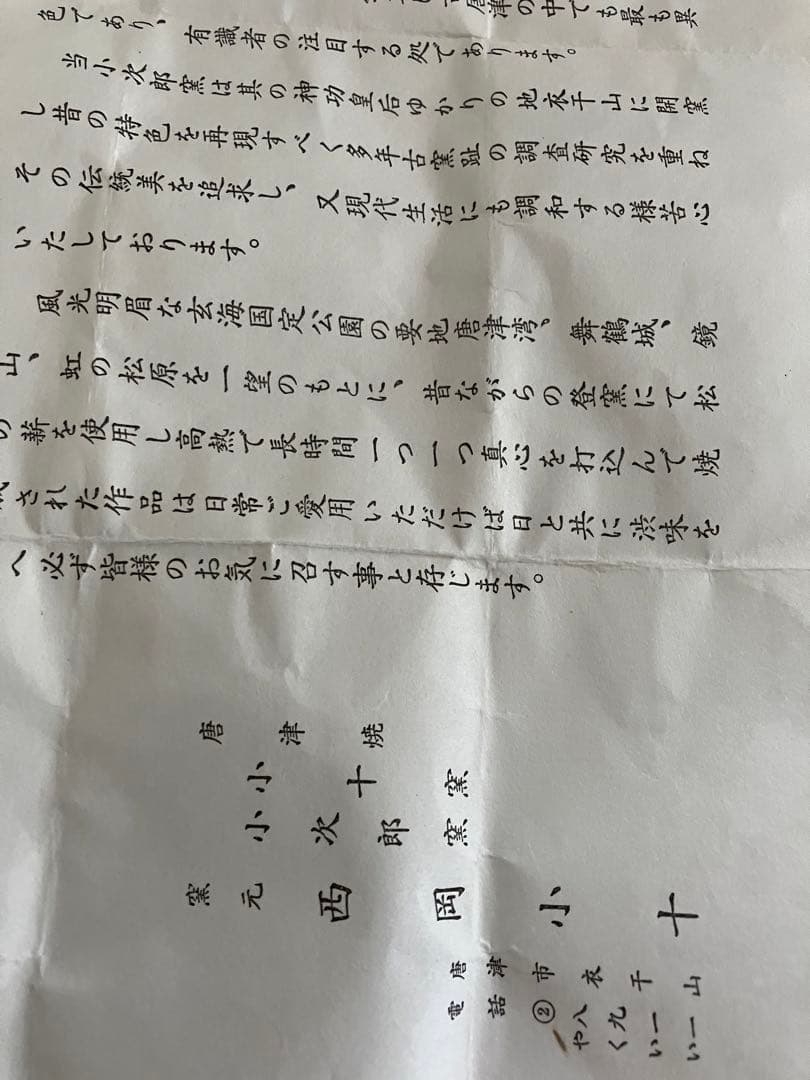 唐津の中でも最も異
色であり、有識者の注目する処であります。
当小次郎窯は其の神功皇后ゆかりの地衣干山に開窯
し昔の特色を再現すべく多年古窯趾の調査研究を重ね
その伝統美を追求し、又現代生活にも調和する様苦心
いたしております。
風光明眉な玄海国定公園の要地唐津湾、舞鶴城、鏡
山、虹の松原を一望のもとに、昔ながらの登窯にて松
の薪を使用し高熱で長時間一つ一つ真心を打込んで焼
成された作品は日常ご愛用いただけば日と共に渋味を
へ必ず皆様のお気に召す事と存じます。
唐津焼
小十窯
小次郎窯
窯元 西岡小十
唐津市衣干山
電話②八九一一
やくいい